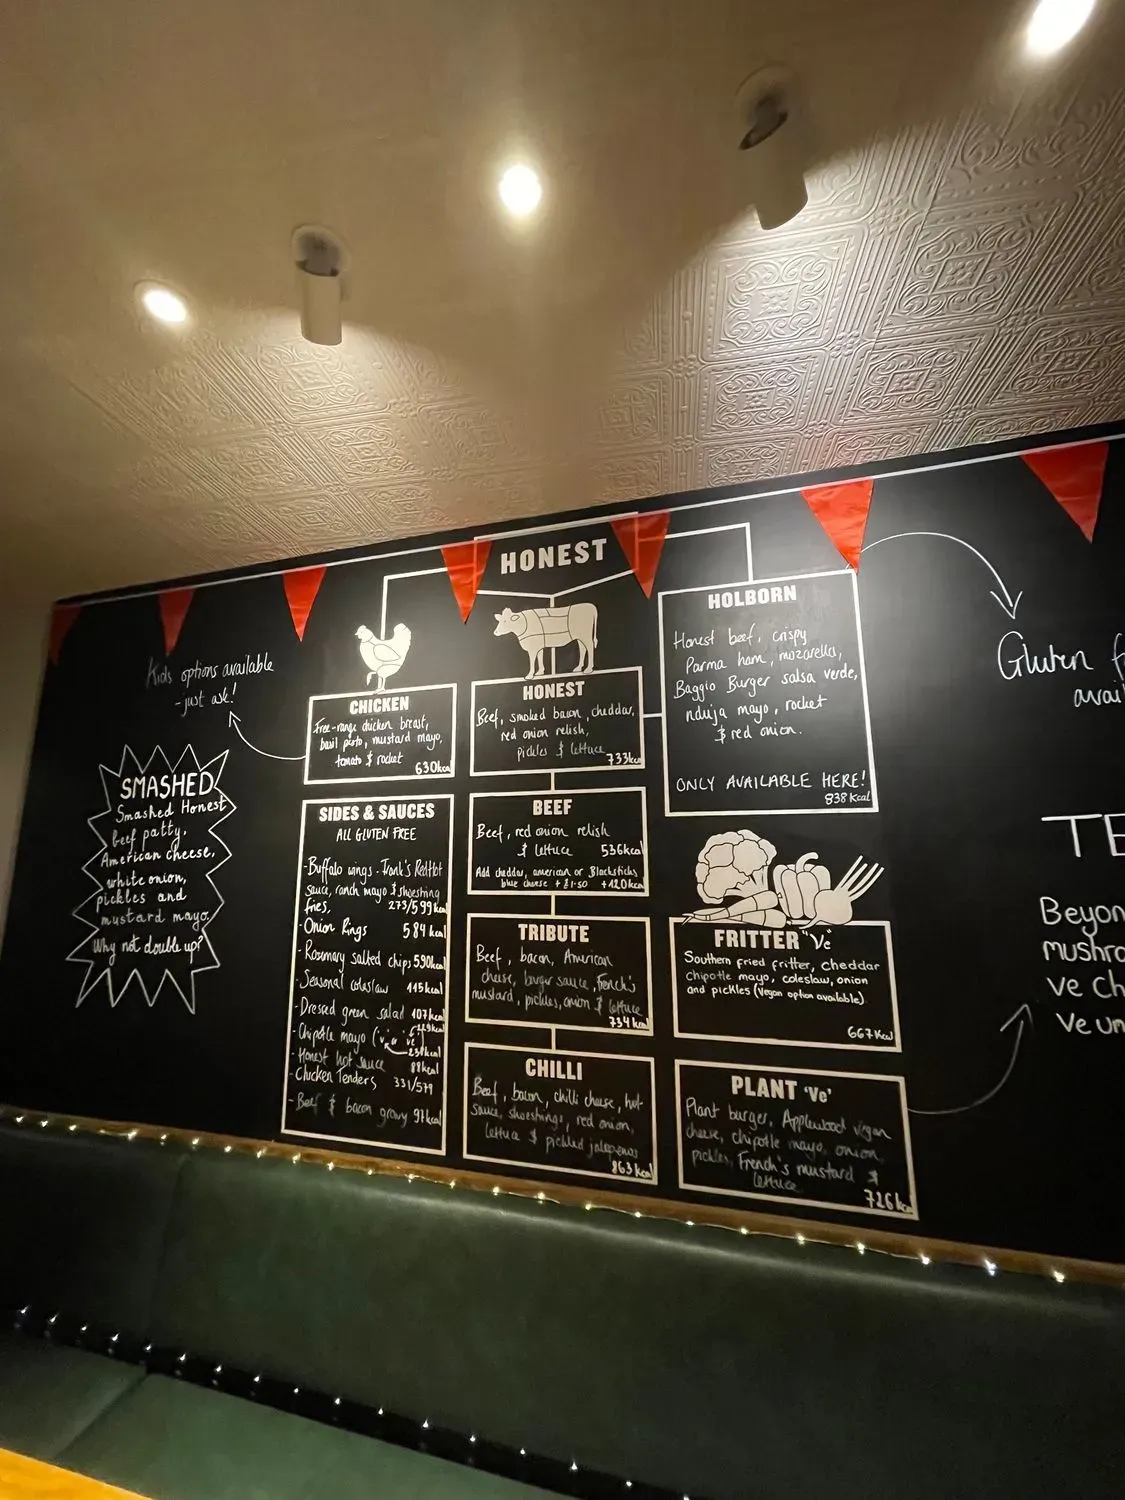 HONEST
Kids options available
- just ask!
SMASHED
Smashed Honest
beef patty,
American cheese,
white onion,
pickles and
mustard mayo.
Why not double up?
CHICKEN
Free-range chicken breast,
basil pesto, mustard mayo,
tomato & rocket
630kcal
SIDES & SAUCES
ALL GLUTEN FREE
- Buffalo wings - Frank's RedHot
sauce, ranch mayo & shoestring
fries. 273/599kcal
- Onion Rings 584kcal
- Rosemary salted chips 590kcal
- Seasonal coleslaw 115kcal
- Dressed green salad 107kcal
- Chipotle mayo
- Honest hot sauce 88kcal
- Chicken Tenders 331/579
- Beef & bacon gravy 97kcal
HONEST
Beef, smoked bacon, cheddar,
red onion relish,
pickles & lettuce
733kcal
BEEF
Beef, red onion relish
& lettuce 536kcal
Add cheddar, american or Blacksticks
blue cheese + £1.50 +120kcal
TRIBUTE
Beef, bacon, American
cheese, burger sauce, French's
mustard, pickles, onion & lettuce
734kcal
CHILLI
Beef, bacon, chilli cheese, hot
sauce, shoestrings, red onion,
lettuce & pickled jalepenos
863kcal
HOLBORN
Honest beef, crispy
Parma ham, mozarella,
Baggio Burger salsa verde,
nduja mayo, rocket
& red onion.
ONLY AVAILABLE HERE!
838Kcal
FRITTER 've'
Southern fried fritter, cheddar
chipotle mayo, coleslaw, onion
and pickles (Vegan option available)
667Kcal
PLANT 've'
Plant burger, Applewood vegan
cheese, chipotle mayo, onion,
pickles, French's mustard &
lettuce
726kcal
Gluten f
avai
TE
Beyon
mushro
ve ch
ve un